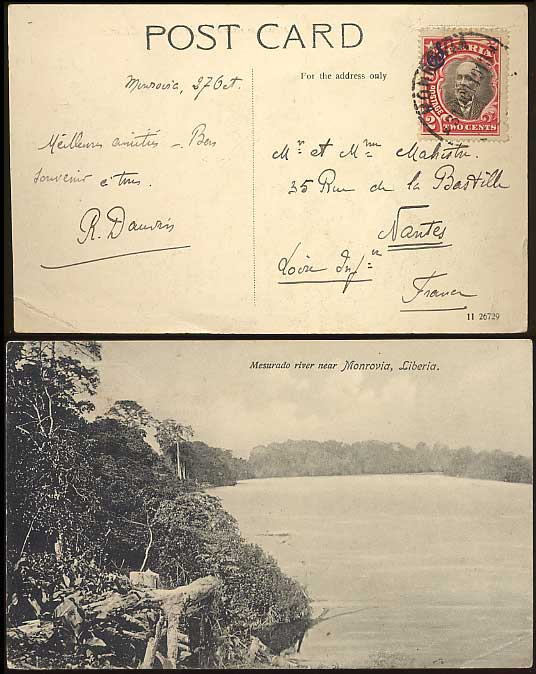 POST CARD
For the address only
LIBERIA
POSTAGE
TWO CENTS
MONROVIA
Monrovia, 27 Oct.
Meilleures amitiés – Bon
souvenir à tous.
R. Dauvin
Mr et Mme Mahistre.
35 Rue de la Bastille
Nantes
Loire Infre
France
11 26729
Mesurado river near Monrovia, Liberia.